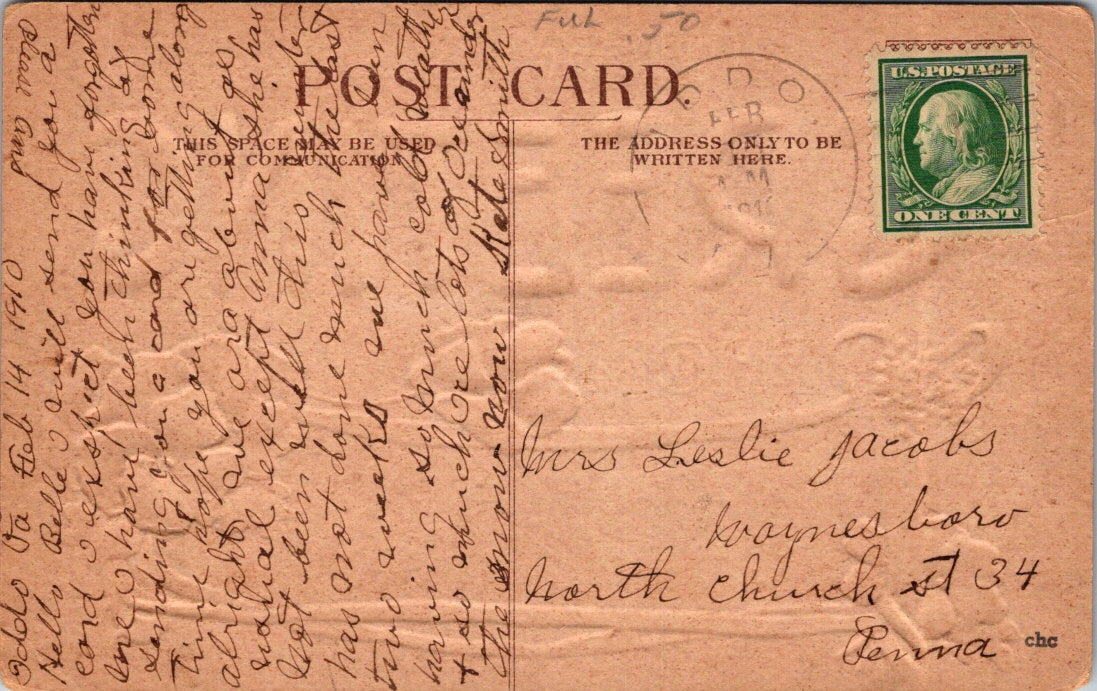 Full .50
POST CARD.
THIS SPACE MAY BE USED
FOR COMMUNICATION.
THE ADDRESS ONLY TO BE
WRITTEN HERE.
U.S. POSTAGE
ONE CENT
FEB
AM
Oddo Va Feb 14 1910
Hello Belle I will send you a
card I expect you have forgoten
me I have been thinking of
sending you a card for some
time hope you are getting along
alright we are about as
usual except Amma she has
not been well this winter
has not done much the last
two weeks we have bin
having so much cold weathe
& so much ice lots of Ice and
the snow now Kate Smith
Mrs Leslie Jacobs
Waynesboro
North Church st 34
Penna
chc